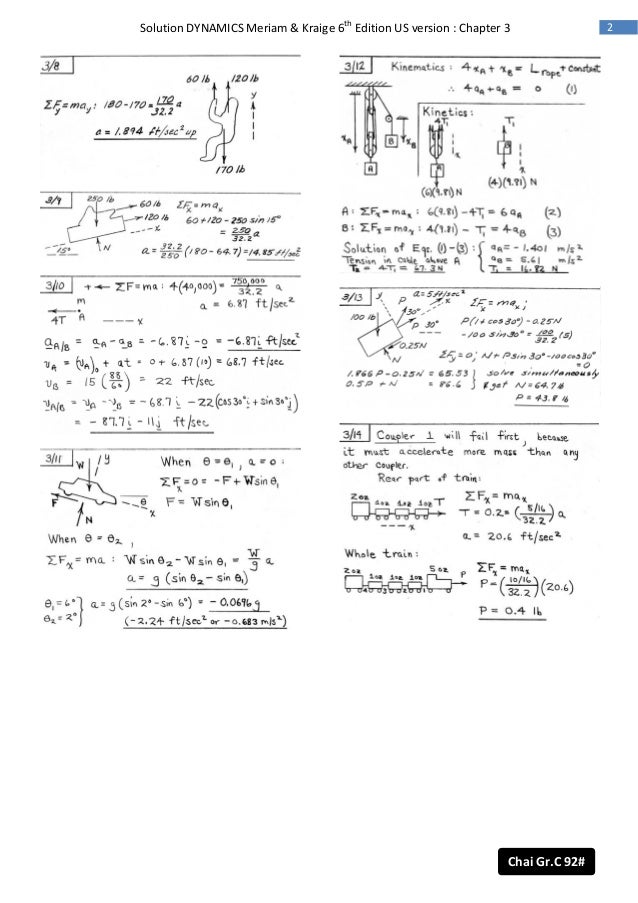 Solution DYNAMICS Meriam & Kraige 6th Edition US version : Chapter 3
2
3/8
60 lb
120 lb
ΣFy = may : 180-170 = 170/32.2 a
y
a = 1.894 ft/sec² up
170 lb
3/9
250 lb
60 lb
120 lb
x
15°
N
ΣFx = max
60+120-250 sin 15°
= 250/32.2 a
a = 32.2/250 (180-64.7) = 14.85 ft/sec²
3/10
+← ΣF = ma : 4(40,000) = 750,000/32.2 a
m
a = 6.87 ft/sec²
4T A
x
aA/B = aA - aB = -6.87i - 0 = -6.87i ft/sec²
vA = (vA)0 + at = 0 + 6.87(10) = 68.7 ft/sec
vB = 15 (88/60) = 22 ft/sec
vA/B = vA - vB = -68.7i - 22(cos30°i + sin30°j)
= -87.7i - 11j ft/sec
3/11
W
y
F
N
θ
x
When θ = θ1, a = 0 :
ΣFx = 0 = -F + W sin θ1
F = W sin θ1
When θ = θ2 ,
ΣFx = ma : W sin θ2 - W sin θ1 = W/g a
a = g (sin θ2 - sin θ1)
θ1 = 6°
θ2 = 2°
a = g (sin 2° - sin 6°) = -0.0696g
(-2.24 ft/sec² or -0.683 m/s²)
3/12
Kinematics : 4xA + xB = Lrope + constant
∴ 4aA + aB = 0 (1)
xA
xB
A
B
Kinetics :
4T1
T1
x
x
(6)(9.81) N
(4)(9.81) N
A : ΣFx = max : 6(9.81) - 4T1 = 6aA (2)
B : ΣFx = max : 4(9.81) - T1 = 4aB (3)
Solution of Eqs. (1)-(3) :
aA = -1.401 m/s²
Tension in cable above A
aB = 5.61 m/s²
= 4T1 = 67.3 N
T1 = 16.82 N
3/13
y
P
a = 5 ft/sec²
x
100 lb
30°
P
30°
0.25N
N
ΣFx = max ;
P(1+cos30°) - 0.25N
- 100 sin30° = 100/32.2 (5)
ΣFy = 0; N + P sin30° - 100cos30°
= 0
1.866P - 0.25N = 65.53
0.5P + N = 86.6
solve simultaneously
& get N = 64.7 lb
P = 43.8 lb
3/14
Coupler 1 will fail first, because
it must accelerate more mass than any
other coupler.
Rear part of train:
2oz 1oz 1oz 1oz T
x
ΣFx = max
T = 0.2 = (5/16 / 32.2) a
a = 20.6 ft/sec²
Whole train:
2oz 1oz 1oz 1oz 5oz P
ΣFx = max
P = (10/16 / 32.2)(20.6)
P = 0.4 lb
Chai Gr.C 92#